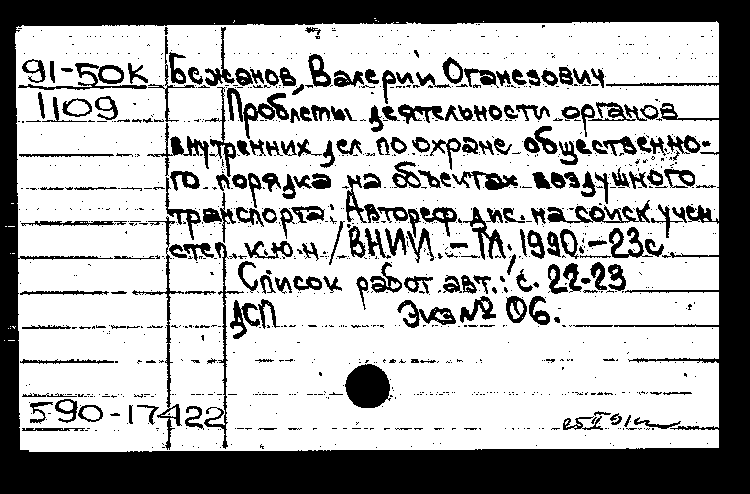 91-50к Бежанов, Валерий Оганезович
1109 Проблемы деятельности органов
внутренних дел по охране общественно-
го порядка на объектах воздушного
транспорта: Автореф. дис. на соиск. учен.
степ. к.ю.н / ВНИИ. - М., 1990. - 23с.
Список работ авт.: с. 22-23
ДСП Экз № 06.
590-17422